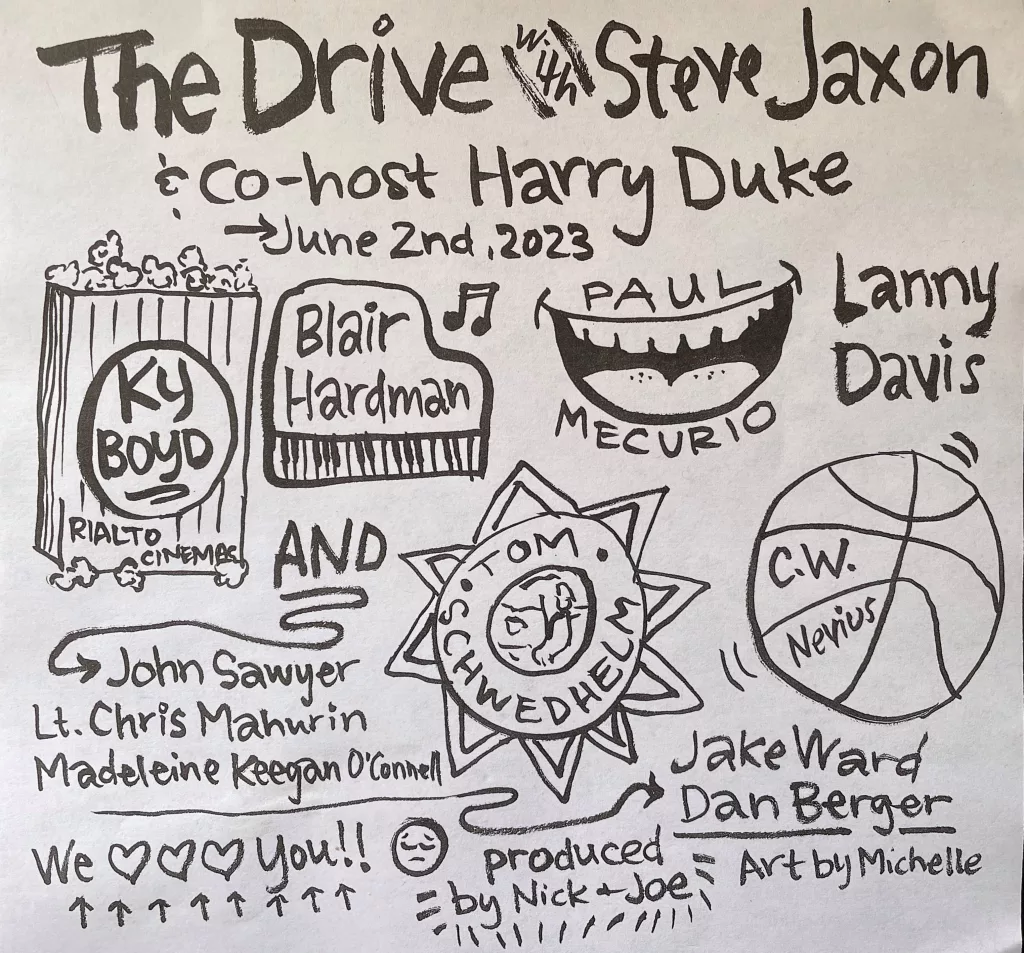 The Drive with Steve Jaxon
& Co-host Harry Duke
→June 2nd, 2023
KY
BOYD
RIALTO
CINEMAS
Blair
Hardman
PAUL
MECURIO
Lanny
Davis
AND
TOM
SCHWEDHELM
C.W.
Nevius
John Sawyer
Lt. Chris Mahurin
Madeleine Keegan O'Connell
Jake Ward
Dan Berger
We ♡♡♡ You!!
produced
by Nick + Joe
Art by Michelle